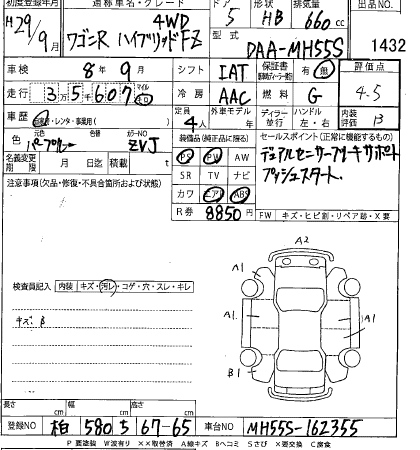 初度登録年月 道称車名・グレード ドア 形状 排気量 出品NO.
H29/9月 ワゴンR ハイブリッドFZ 4WD 5 HB 660cc
型式 DAA-MH55S 1432
車検 8年9月 シフト IAT 保証書 有・無 評価点
走行 35607 マイル キロ 冷房 AAC 燃料 G 4.5
車歴 自家・レンタ・事業用( ) 定員 4人 外車モデル年 ディーラー 並行 ハンドル 左・右 内装評価 B
色 元色 パープル カラーNO ZVJ
装備品(純正品に限る) セールスポイント(正常に機能するもの)
名義変更期限 月 日迄 積載 t
PS PW AW デュアルセンサーブレーキサポート
SR TV ナビ プッシュスタート.
注意事項(欠品・修復・不具合箇所および状態)
カワ エアB ABS
R券 8850 FW キズ・ヒビ割・リペア跡・X要
A2
A1
A1
A1.
A1
B1
検査員記入 内装 キズ・汚レ・コゲ・穴・スレ・キレ
キズ.B
長さ 幅 高さ
登録NO 柏 580 ち 67-65 車台NO MH55S-162355
P 要塗装 W波有り XX取替済 A線キズ Bヘコミ Sさび X要交換 C腐食